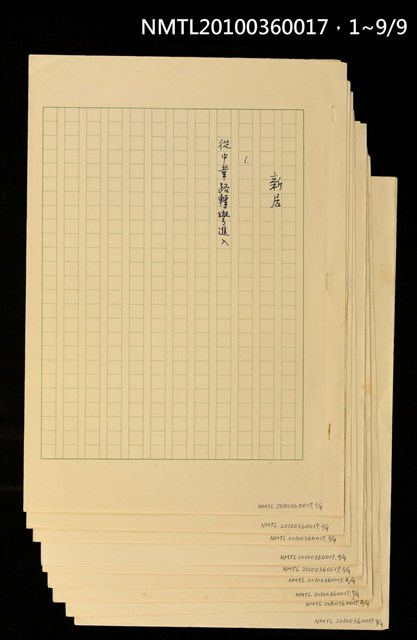 NMTL20100360017，1~9/9
新居
1.
從中華路轉彎進入
NMTL 20100360017, 1/9
NMTL 20100360017, 2/9
NMTL 20100360017, 3/9
NMTL 20100360017, 4/9
NMTL 20100360017, 5/9
NMTL 20100360017, 6/9
NMTL 20100360017, 7/9
NMTL 20100360017, 8/9
NMTL 20100360017, 9/9